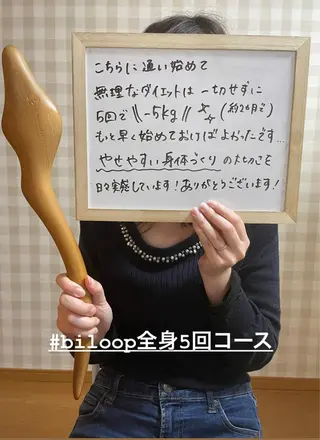 こちらに通い始めて
無理なダイエットは一切せずに
5回で \\-5kg// (約2ヶ月で)
もっと早く始めておけばよかったです…
やせやすい身体づくりのたのことを
日々実感しています!ありがとうございます!
#biloop全身5回コース